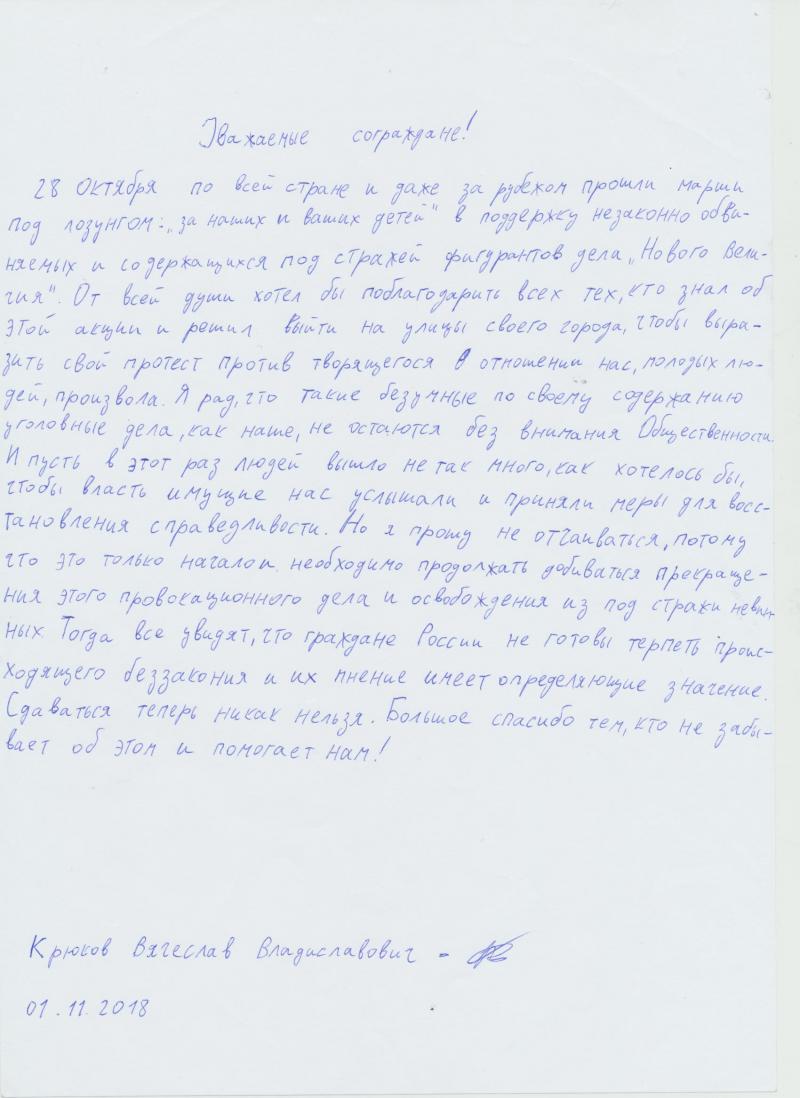 Уважаемые сограждане!
28 октября по всей стране и даже за рубежом прошли марши
под лозунгом: „за наших и ваших детей" в поддержку незаконно обви-
няемых и содержащихся под стражей фигурантов дела „Нового Вели-
чия". От всей души хотел бы поблагодарить всех тех, кто знал об
этой акции и решил выйти на улицы своего города, чтобы выра-
зить свой протест против творящегося в отношении нас, молодых лю-
дей, произвола. Я рад, что такие безумные по своему содержанию
уголовные дела, как наше, не остаются без внимания Общественности.
И пусть в этот раз людей вышло не так много, как хотелось бы,
чтобы власть имущие нас услышали и приняли меры для восс-
тановления справедливости. Но я прошу не отчаиваться, потому
что это только начало и необходимо продолжать добиваться прекраще-
ния этого провокационного дела и освобождения из под стражи невин-
ных. Тогда все увидят, что граждане России не готовы терпеть проис-
ходящего беззакония и их мнение имеет определяющие значение.
Сдаваться теперь никак нельзя. Большое спасибо тем, кто не забы-
вает об этом и помогает нам!
Крюков Вячеслав Владиславович -
01.11.2018